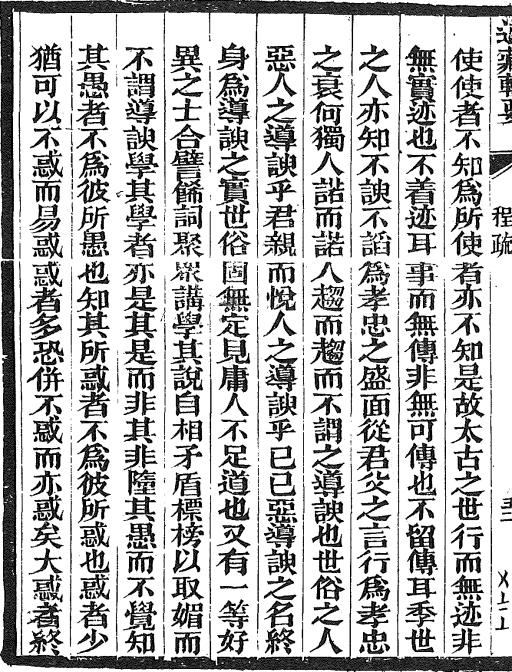 道藏輯要
程疏
使使者不知爲所使者亦不知是故太古之世行而無迹非
無實迹也不着迹耳事而無傳非無可傳也不留傳耳季世
之人亦知不諛不謟爲孝忠之盛面從君父之言行爲孝忠
之衰何獨人諾而諾人趨而趨而不謂之導諛也世俗之人
惡人之導諛乎君親而悅人之導諛乎已已惡導諛之名終
身爲導諛之實世俗固無定見庸人不足道也又有一等好
異之士合譬餙詞聚衆講學其說自相矛盾標榜以取媚而
不謂導諛學其學者亦是其是而非其非隨其愚而不覺知
其愚者不爲彼所愚也知其所惑者不爲彼所惑也惑者少
猶可以不惑而易惑惑者多恐併不惑而亦惑矣大惑者終